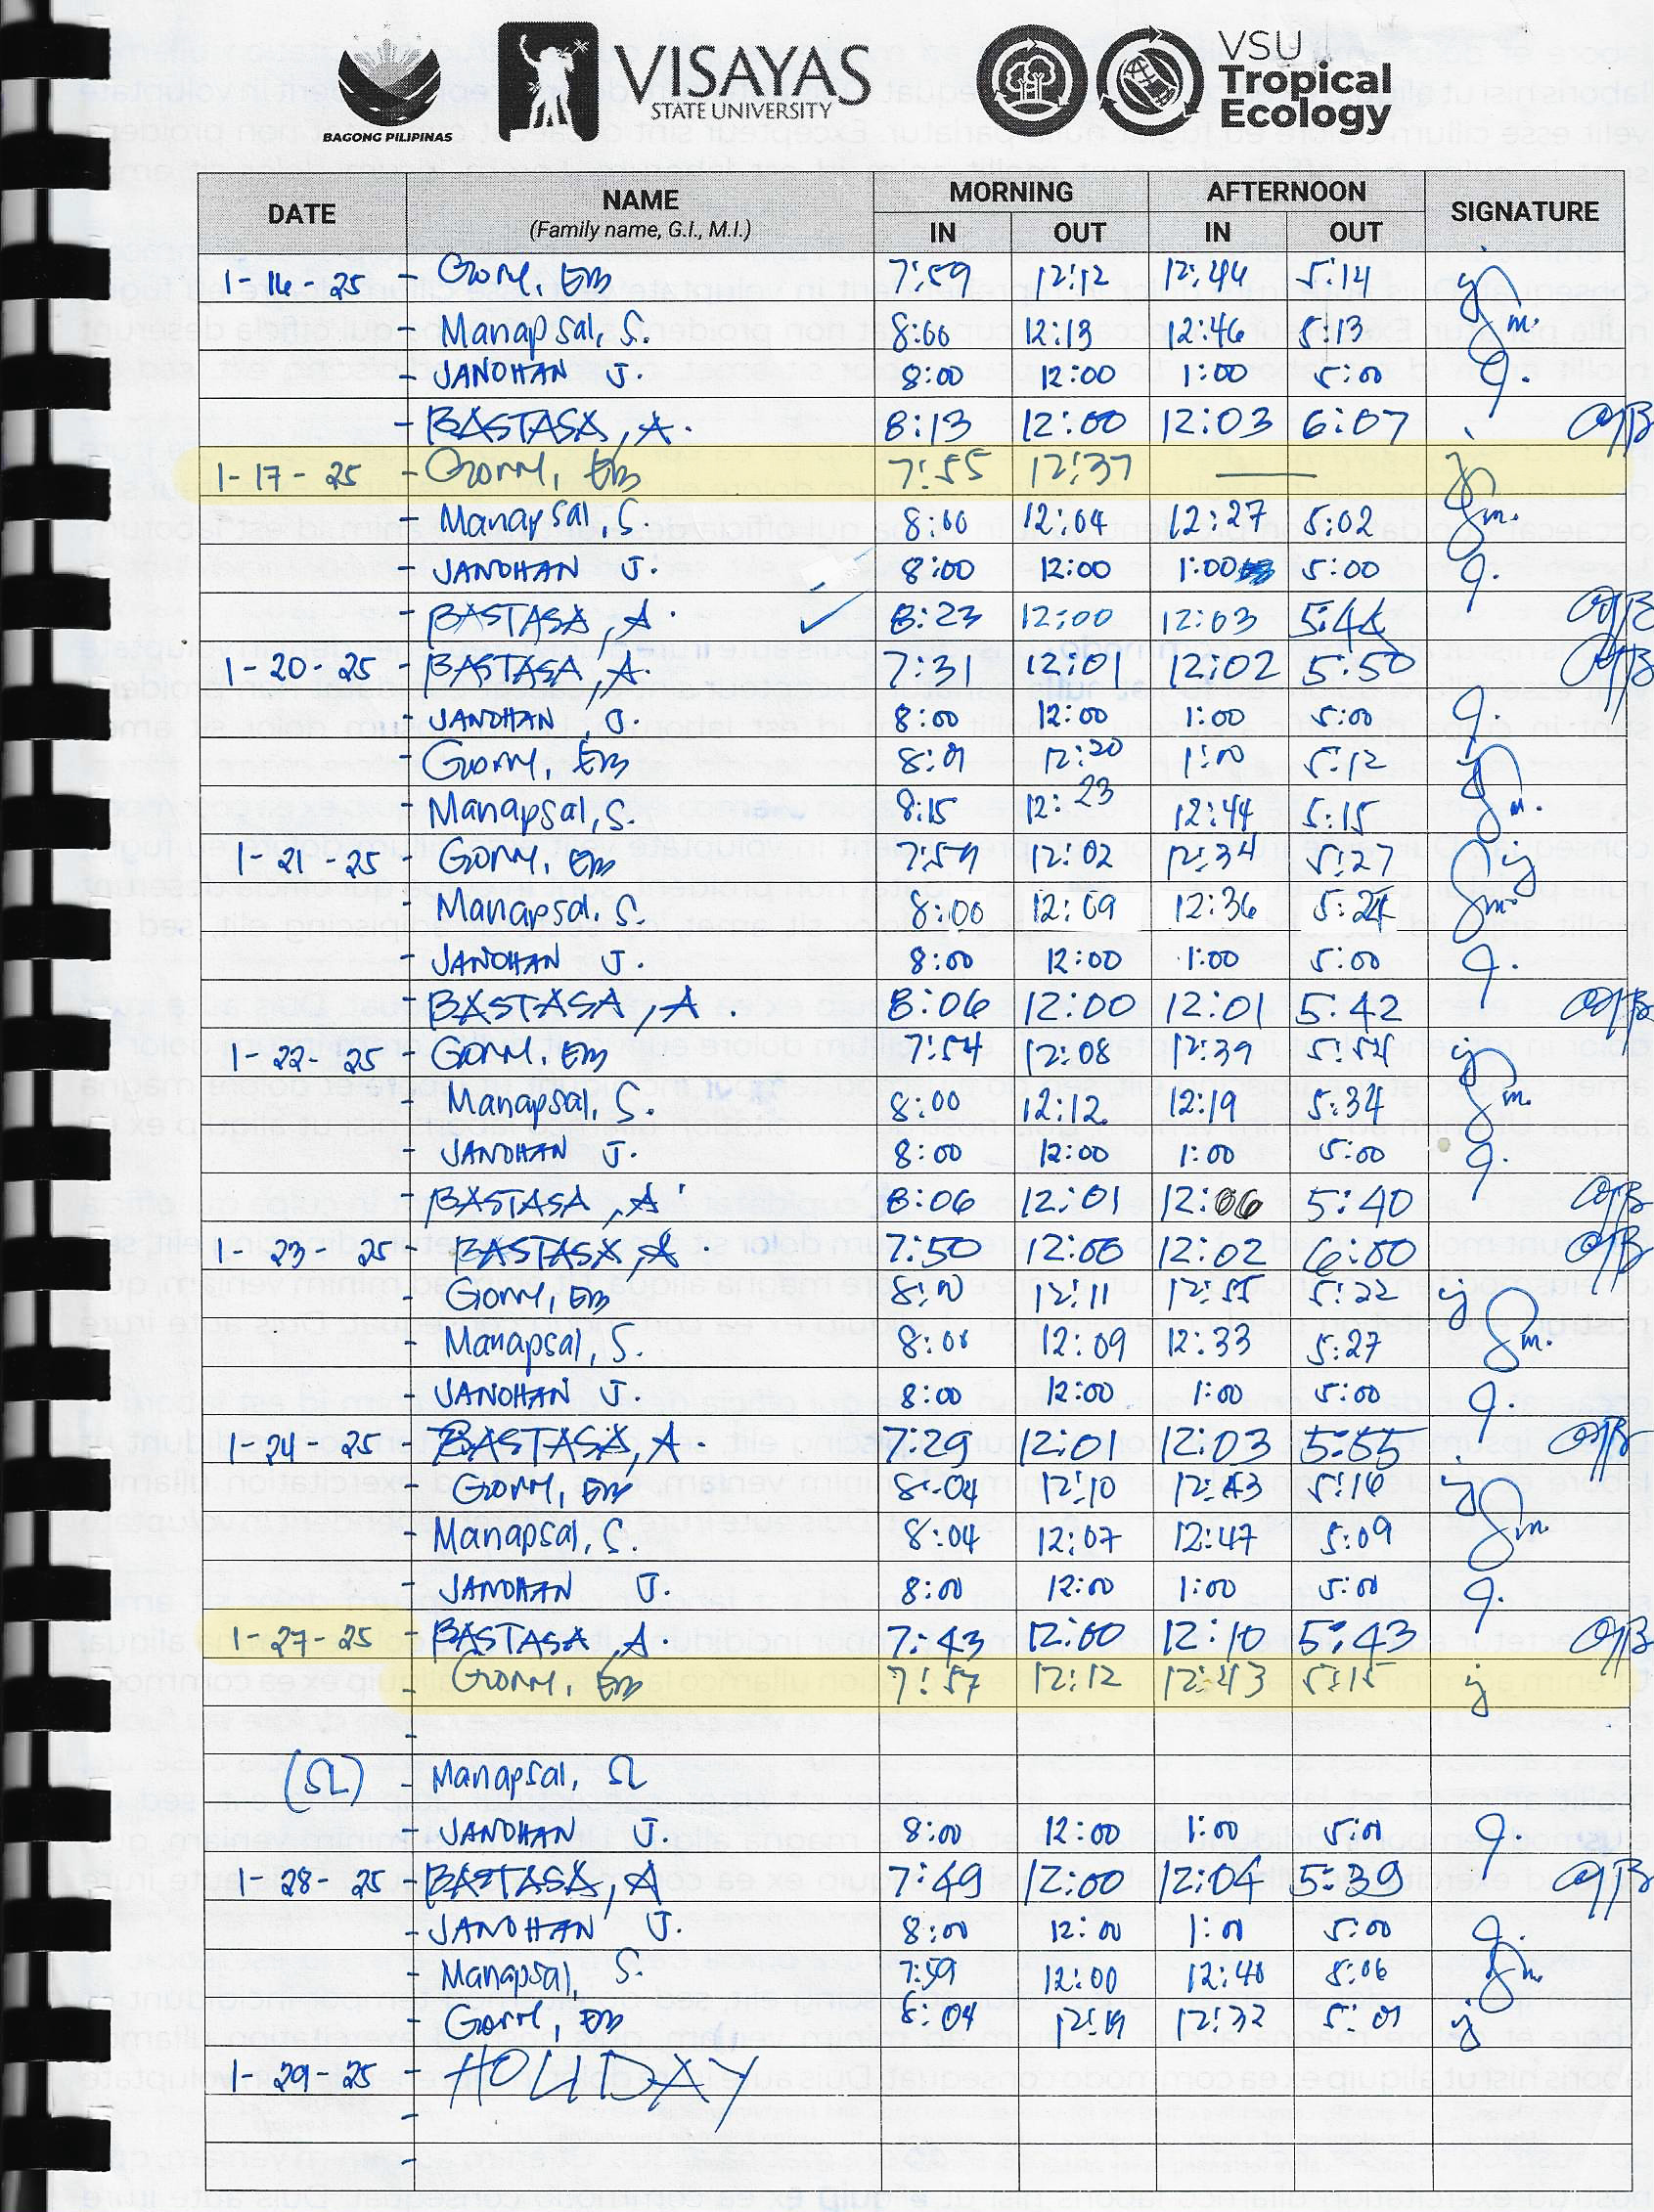 BAGONG PILIPINAS
VISAYAS
STATE UNIVERSITY
VSU
Tropical
Ecology
DATE NAME (Family name, G.I., M.I.) MORNING AFTERNOON SIGNATURE
IN OUT IN OUT
1-16-25 - Em 7:59 12:12 12:46 5:14
- Manapsal, S. 8:00 12:13 12:46 5:13
- JANOHAN J. 8:00 12:00 1:00 5:00
- BASTASA, A. 8:13 12:00 12:03 6:07
1-17-25 - Em 7:55 12:37 —
- Manapsal, S. 8:00 12:04 12:27 5:02
- JANOHAN J. 8:00 12:00 1:00 5:00
- BASTASA, A. ✓ 8:23 12:00 12:03
1-20-25 - BASTASA, A. 7:31 12:01 12:02 5:50
- JANOHAN, J. 8:00 12:00 1:00 5:00
- Em 12:20 1:00 5:12
- Manapsal, S. 8:15 12:23 12:44 5:15
1-21-25 - Em 7:59 12:02 12:34 5:27
- Manapsal, S. 8:00 12:09 12:36
- JANOHAN J. 8:00 12:00 1:00 5:00
- BASTASA, A. 8:06 12:00 12:01 5:42
1-22-25 - Em 7:54 12:08 12:39
- Manapsal, S. 8:00 12:12 12:19 5:34
- JANOHAN J. 8:00 12:00 1:00 5:00
- BASTASA, A. 8:06 12:01 12:06 5:40
1-23-25 - BASTASA, A. 7:50 12:00 12:02 6:00
- Em 8:00 12:11 5:22
- Manapsal, S. 12:09 12:33 5:27
- JANOHAN J. 8:00 12:00 1:00 5:00
1-24-25 - BASTASA, A. 7:29 12:01 12:03 5:55
- Em 8:04 12:10 12:43 5:16
- Manapsal, S. 8:04 12:07 12:47 5:09
- JANOHAN J. 8:00 12:00 1:00 5:00
1-27-25 - BASTASA, A. 7:43 12:00 12:10 5:43
- Em 7:57 12:12 12:43 5:15
-
(SL) - Manapsal, SL
- JANOHAN J. 8:00 12:00 1:00 5:00
1-28-25 - BASTASA, A 7:49 12:00 12:04 5:39
- JANOHAN J. 8:00 12:00 1:00 5:00
- Manapsal, S. 7:59 12:00 12:40 5:06
- Em 8:04 12:19 12:32 5:01
1-29-25 - HOLIDAY
-
-